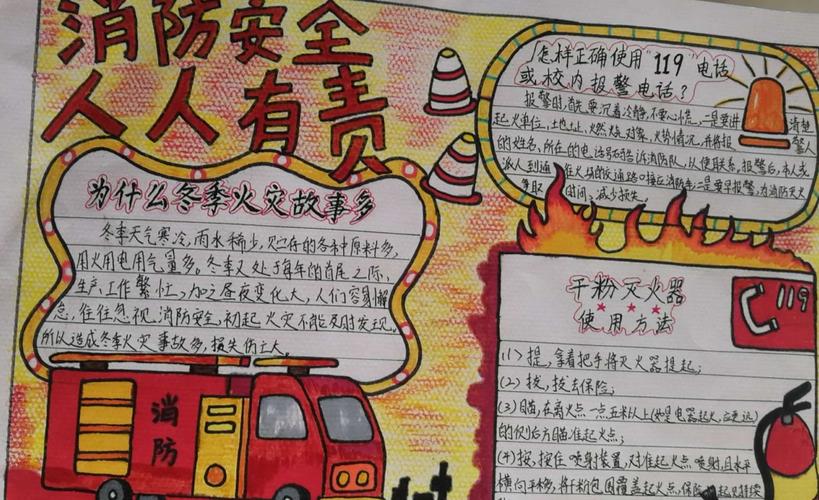 消防安全
人人有责
为什么冬季火灾故事多
冬季天气寒冷,雨水稀少,贮存的各种原料多,
用火用电用气量多。冬季又处于每年的首尾之际,
生产,工作繁忙,加之昼夜变化大,人们容易懈
怠,往往忽视消防安全,初起火灾不能及时发现,
所以造成冬季火灾事故多,损失伤亡大。
消防
怎样正确使用“119”电话
或校内报警电话?
报警时,首先要沉着冷静,不要心慌,一是要讲清楚
起火单位,土地址,燃烧对象,火势情况,并将报警人
的姓名,所在的电话号码告诉消防队,以便联系,报警后,本人或
派人到通往火场的交通路口接应消防车;二是要早报警,为消防灭火
争取时间,减少损失。
干粉灭火器
使用方法
119
(1)提,拿着把手将灭火器提起;
(2)拔,拔去保险;
(3)瞄,在离火点一点五米以上(如是电器起火,应更远)
的侧后方瞄准起火点;
(4)按,按住喷射装置,对准起火点喷射,且水平
横向移,将干粉包围覆盖起火点,保险起见持续